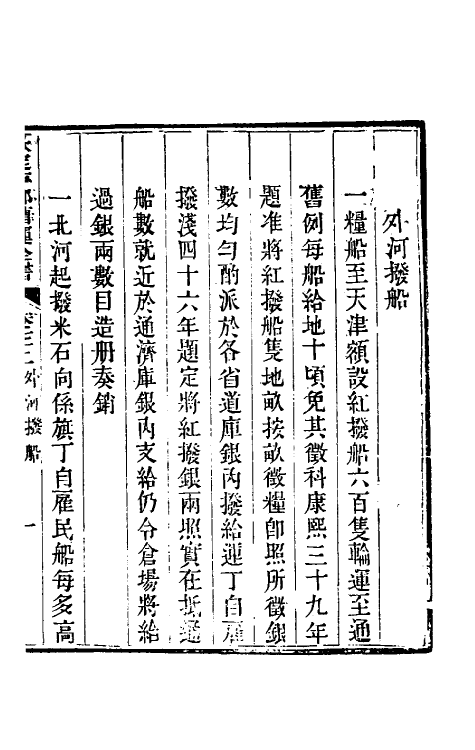 外河撥船
一糧船至天津額設紅撥船六百隻輪運至通
舊例每船給地十頃免其徵科康熙三十九年
題准將紅撥船隻地畝按畝徵糧卽照所徵銀
數均勻酌派於各省道庫銀內撥給運丁自雇
撥淺四十六年題定將紅撥銀兩照實在抵通
船數就近於通濟庫銀內支給仍令倉場將給
過銀兩數目造册奏銷
一北河起撥米石向係旗丁自雇民船每多高
外河撥船
一